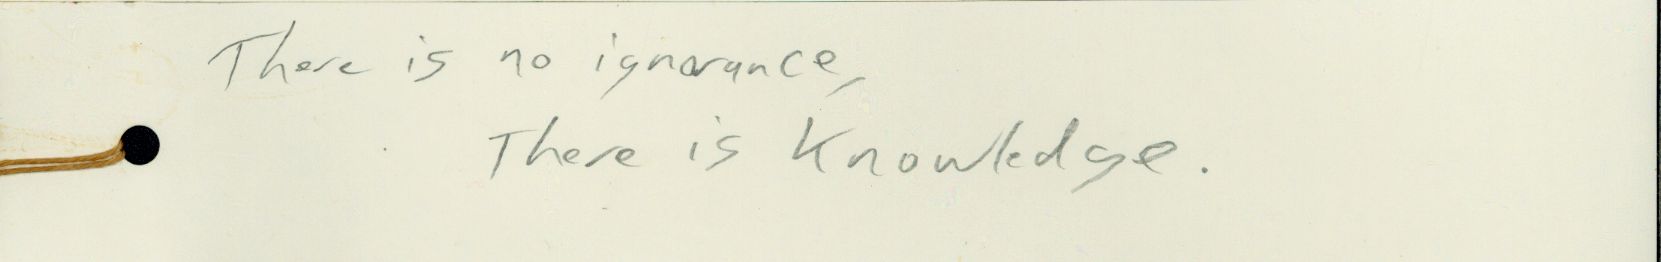 There is no ignorance,
There is Knowledge.